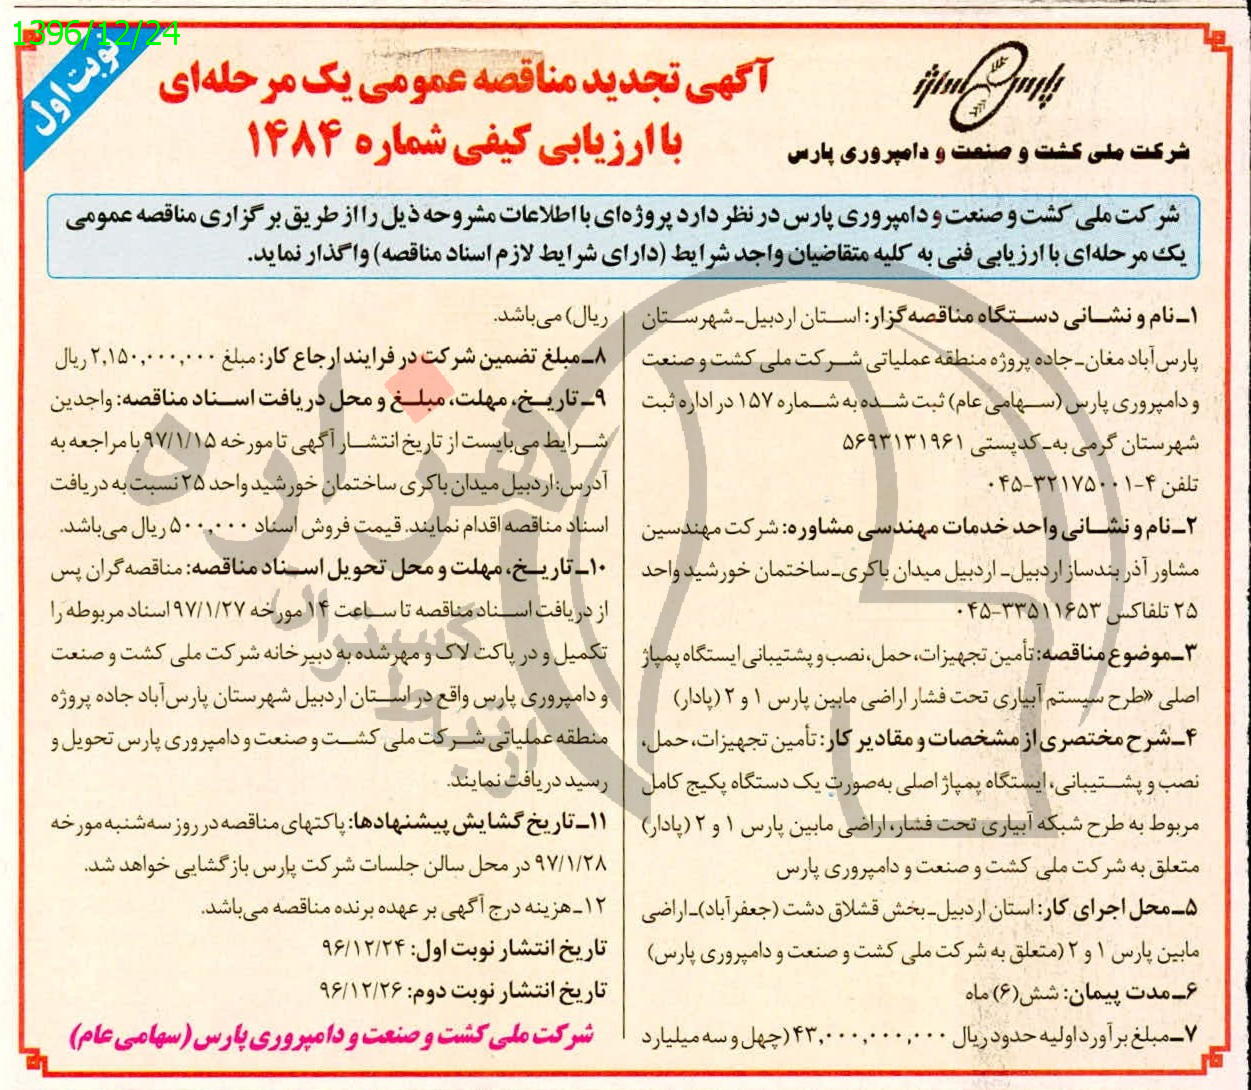 1396/12/24
نوبت اول
پارس
شرکت ملی کشت و صنعت و دامپروری پارس
آگهی تجدید مناقصه عمومی یک مرحله‌ای
با ارزیابی کیفی شماره ۱۴۸۴
شرکت ملی کشت و صنعت و دامپروری پارس در نظر دارد پروژه‌ای با اطلاعات مشروحه ذیل را از طریق برگزاری مناقصه عمومی
یک مرحله‌ای با ارزیابی فنی به کلیه متقاضیان واجد شرایط (دارای شرایط لازم اسناد مناقصه) واگذار نماید.
۱ـ نام و نشـانی دسـتگاه مناقصه‌گزار: اسـتان اردبیل ـ شهرسـتان
پارس‌آباد مغان ـ جاده پروژه منطقه عملیاتی شـرکت ملی کشت و صنعت
و دامپروری پارس (سـهامی عام) ثبت شـده به شـماره ۱۵۷ در اداره ثبت
شهرستان گرمی به ـ کدپستی ۵۶۹۳۱۳۱۹۶۱
تلفن ۴-۳۲۱۷۵۰۰۱-۰۴۵
۲ـ نام و نشـانی واحد خدمات مهندسی مشاوره: شرکت مهندسین
مشاور آذر بندساز اردبیل ـ اردبیل میدان باکری ـ ساختمان خورشید واحد
۲۵ تلفاکس ۳۳۵۱۱۶۵۳-۰۴۵
۳ـ موضوع مناقصه: تأمین تجهیزات، حمل، نصب و پشتیبانی ایستگاه پمپاژ
اصلی «طرح سیستم آبیاری تحت فشار اراضی مابین پارس ۱ و ۲ (پادار)
۴ـ شرح مختصری از مشخصات و مقادیر کار: تأمین تجهیزات، حمل،
نصب و پشـتیبانی، ایستگاه پمپاژ اصلی به‌صورت یک دستگاه پکیج کامل
مربوط به طرح شبکه آبیاری تحت فشار، اراضی مابین پارس ۱ و ۲ (پادار)
متعلق به شرکت ملی کشت و صنعت و دامپروری پارس
۵ـ محل اجرای کار: استان اردبیل ـ بخش قشلاق دشت (جعفرآباد) ـ اراضی
مابین پارس ۱ و ۲ (متعلق به شرکت ملی کشت و صنعت و دامپروری پارس)
۶ـ مدت پیمان: شش(۶) ماه
۷ـ مبلغ برآورد اولیه حدود ریال ۴۳,۰۰۰,۰۰۰,۰۰۰ (چهل و سه میلیارد
ریال) می‌باشد.
۸ـ مبلغ تضمین شرکت در فرایند ارجاع کار: مبلغ ۲,۱۵۰,۰۰۰,۰۰۰ ریال
۹ـ تاریـخ، مهلت، مبلـغ و محل دریافت اسـناد مناقصه: واجدین
شـرایط می‌بایست از تاریخ انتشـار آگهی تا مورخه ۹۷/۱/۱۵ با مراجعه به
آدرس: اردبیل میدان باکری ساختمان خورشید واحد ۲۵ نسبت به دریافت
اسناد مناقصه اقدام نمایند. قیمت فروش اسناد ۵۰۰,۰۰۰ ریال می‌باشد.
۱۰ـ تاریـخ، مهلت و محل تحویل اسـناد مناقصه: مناقصه‌گران پس
از دریافت اسـناد مناقصه تا سـاعت ۱۴ مورخه ۹۷/۱/۲۷ اسناد مربوطه را
تکمیل و در پاکت لاک و مهر شده به دبیرخانه شرکت ملی کشت و صنعت
و دامپروری پارس واقع در اسـتان اردبیل شهرستان پارس‌آباد جاده پروژه
منطقه عملیاتی شـرکت ملی کشـت و صنعت و دامپروری پارس تحویل و
رسید دریافت نمایند.
۱۱ـ تاریخ گشایش پیشنهادها: پاکتهای مناقصه در روز سه‌شنبه مورخه
۹۷/۱/۲۸ در محل سالن جلسات شرکت پارس بازگشایی خواهد شد.
۱۲ـ هزینه درج آگهی بر عهده برنده مناقصه می‌باشد.
تاریخ انتشار نوبت اول: ۹۶/۱۲/۲۴
تاریخ انتشار نوبت دوم: ۹۶/۱۲/۲۶
شرکت ملی کشت و صنعت و دامپروری پارس (سهامی عام)
هزاره
گستران
ارتباط